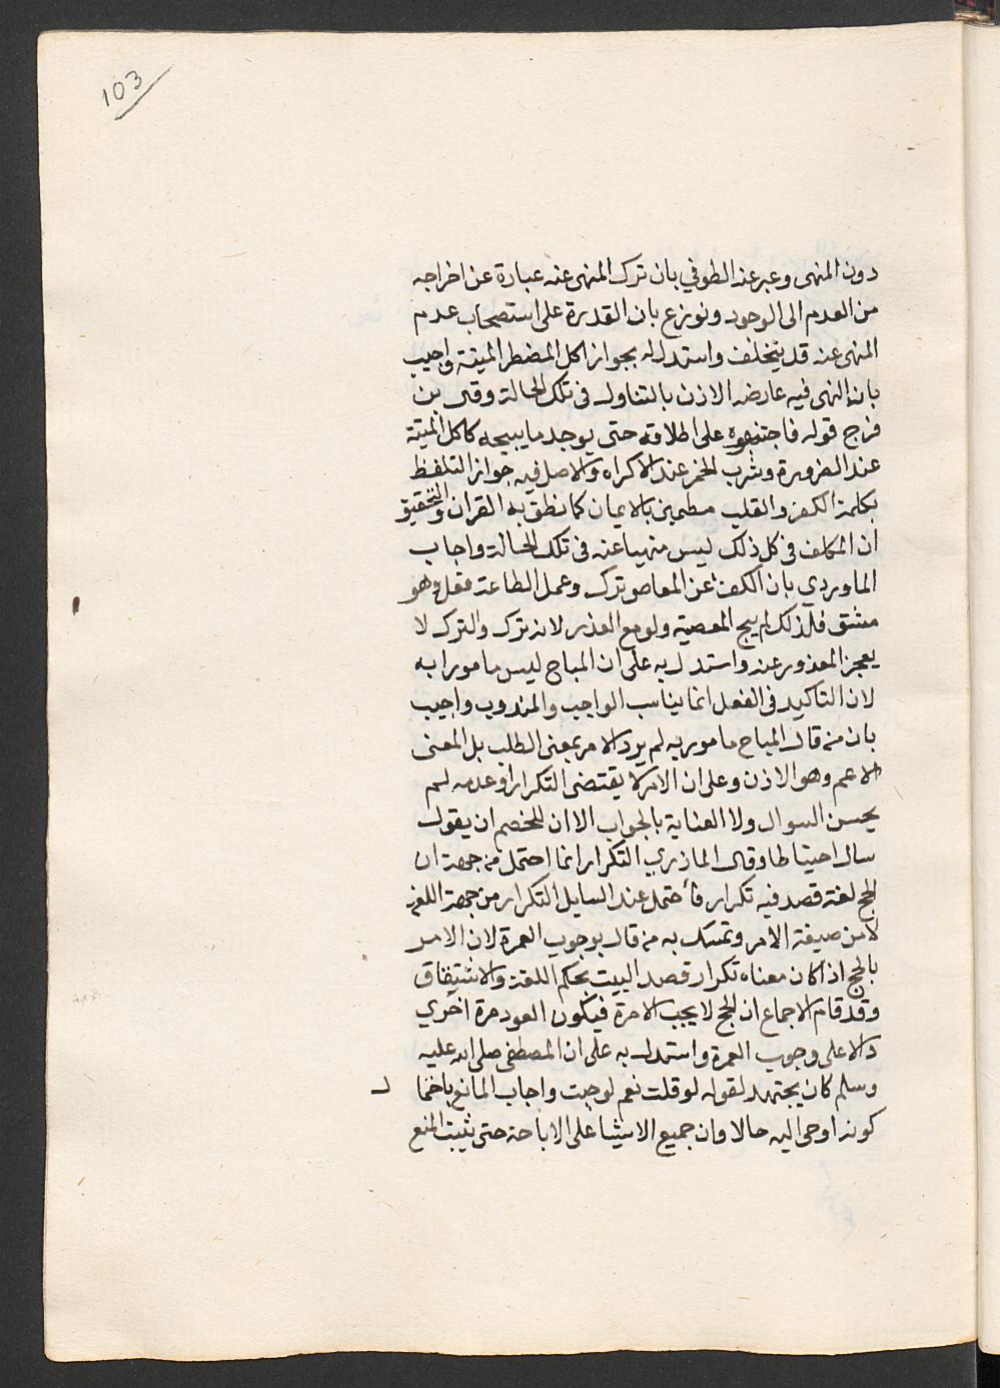 103
دون المنهى وعبر عنه الطوفي بان ترك المنهى عنه عبارة عن اخراجه
من العدم الى الوجود ونوزع بان القدرة على استصحاب عدم
المنهى عنه قد يتخلف واستدل له بجواز اكل المضطر الميتة واجيب
بان النهى فيه عارضه الاذن بالتناول فى تلك الحالة وقال بن
فرج قوله فاجتنبوه على اطلاقه حتى يوجد ما يبيحه كاكل الميتة
عند الضرورة وشرب الخمر عند الاكراه والاصل فيه جواز التلفظ
بكلمة الكفر والقلب مطمين بالايمان كما نطق به القران والتحقيق
ان المكلف فى كل ذلك ليس منهيا عنه فى تلك الحالة واجاب
الماوردي بان الكف عن المعاصى ترك وعمل الطاعة فعل وهو
مشق فلذلك لم يبح المعصية ولو مع العذر لانه ترك والترك لا
يعجز المعذور عنه واستدل به على ان المباح ليس مامورا به
لان التاكيد فى الفعل انما يناسب الواجب والمندوب واجيب
بان من قال المباح مامور به لم يرد الامر بمعنى الطلب بل المعنى
الاعم وهو الاذن وعلى ان الامر لا يقتضى التكرار او عدمه لم
يحسن السوال ولا العناية بالجواب الا ان للخصم ان يقول
سال احتياطا وقال المازري التكرار انما احتمل من جهة ان
الحج لغة قصد فيه تكرار فاحتمل عند السايل التكرار من جهة اللغة
لا من صيغة الامر وتمسك به من قال بوجوب العمرة لان الامر
بالحج اذا كان معناه تكرار قصد البيت بحكم اللغة والاشتقاق
وقد قام الاجماع ان الحج لا يجب الا مرة فيكون العود مرة اخري
دالا على وجوب العمرة واستدل به على ان المصطفى صلى الله عليه
وسلم كان يجتهد لقوله لو قلت نعم لوجبت واجاب المانع باحتمال
كونه اوحى اليه حالا وان جميع الاشيا على الاباحة حتى يثبت المنع